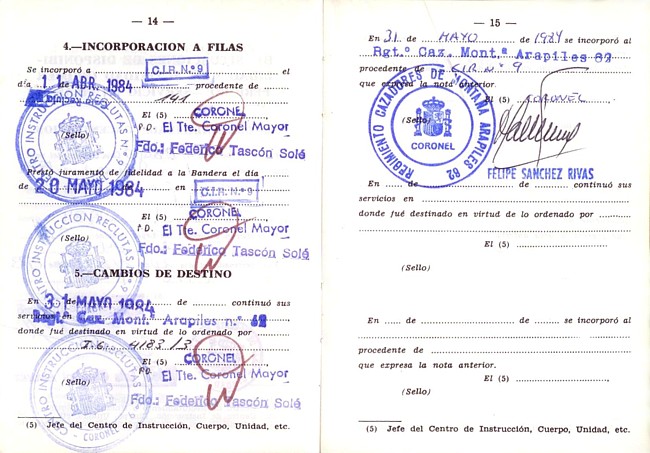 — 14 —
4.—INCORPORACION A FILAS
Se incorporó a C.I.R. N.º 9 el
día 11 ABR. 1984 procedente de
141
El (5) CORONEL
(Sello)
P.D. El Tte. Coronel Mayor
Fdo.: Federico Tascón Solé
Prestó juramento de fidelidad a la Bandera el día
20 MAYO 1984 en C.I.R. N.º 9
El (5) CORONEL
(Sello)
P.D. El Tte. Coronel Mayor
Fdo.: Federico Tascón Solé
CENTRO INSTRUCCION RECLUTAS N.º 9
5.—CAMBIOS DE DESTINO
En 31 MAYO 1984 de de continuó sus
servicios en Rgt. Caz. Mont.ª Arapiles n.º 62
donde fué destinado en virtud de lo ordenado por
4183/3
El (5) CORONEL
(Sello)
P.D. El Tte. Coronel Mayor
Fdo.: Federico Tascón Solé
CENTRO INSTRUCCION RECLUTAS N.º 9
- CORONEL -
(5) Jefe del Centro de Instrucción, Cuerpo, Unidad, etc.
— 15 —
En 31 de MAYO de 1984 se incorporó al
Rgt.º Caz. Mont.ª Arapiles 62
procedente de CIR Nº 9
que expresa la nota anterior.
El (5) CORONEL
(Sello)
REGIMIENTO CAZADORES DE MONTAÑA ARAPILES 62
CORONEL
FELIPE SANCHEZ RIVAS
En de de continuó sus
servicios en
donde fué destinado en virtud de lo ordenado por
El (5)
(Sello)
En de de se incorporó al
procedente de
que expresa la nota anterior.
El (5)
(Sello)
(5) Jefe del Centro de Instrucción, Cuerpo, Unidad, etc.